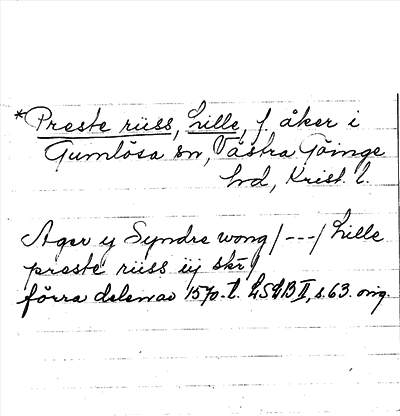 *Preste rüss, Lille, f. åker i
Gumlösa sn, Västra Göinge
hd, Krist. l.
Ager y Syndre wong /---/ Lille
preste rüss iij skr
förra delen av 1570-t. LSLB II, s. 63. orig.